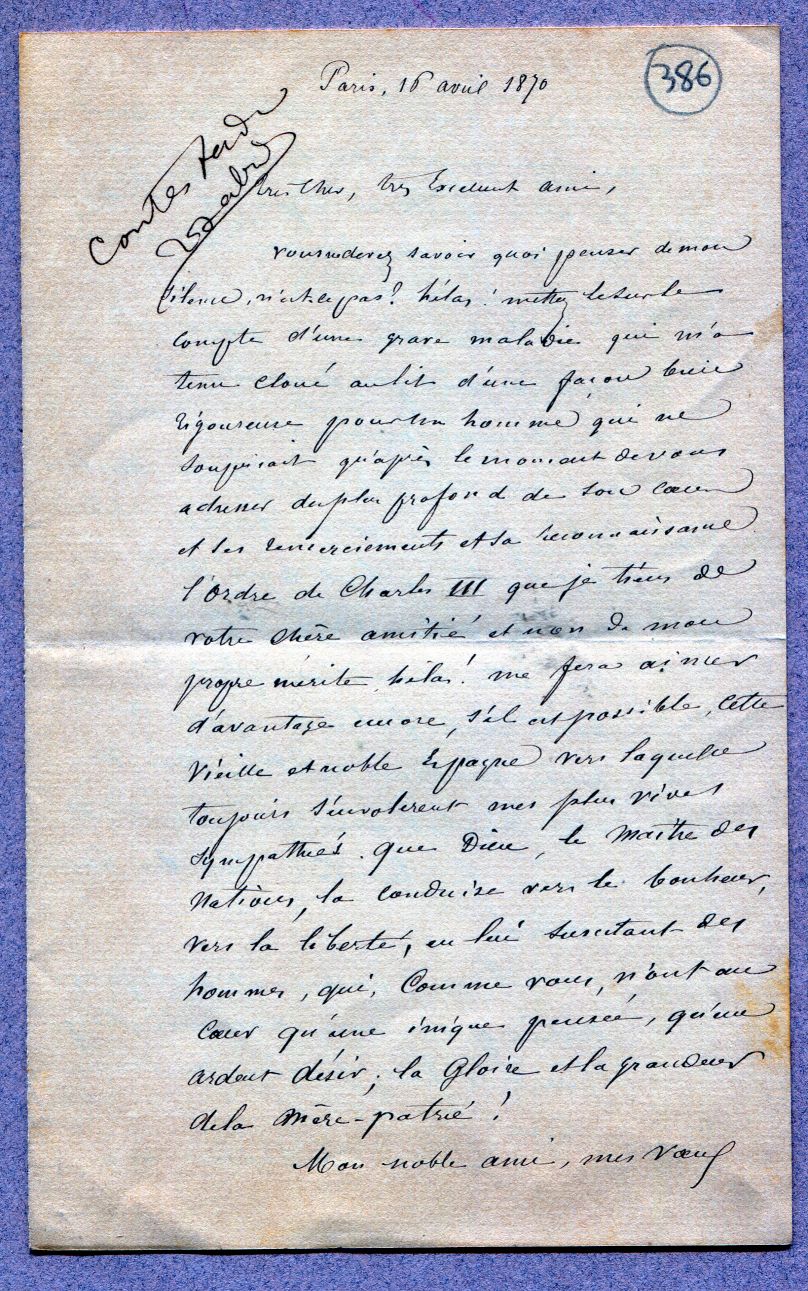 Paris, 16 avril 1870
386
Contestada
25 abril
très cher, très Excellent ami,
vous ne devez savoir quoi penser de mon
silence, n'est-ce pas? hélas! mettez le sur le
compte d'une grave maladie qui m'a
tenu cloué au lit d'une façon bien
rigoureuse pour un homme qui ne
soupirait qu'après le moment de vous
adresser du plus profond de son cœur
et ses remerciements et sa reconnaissance
l'Ordre de Charles III que je tiens de
votre chère amitié et non de mon
propre mérite, hélas! me fera aimer
d'avantage encore, s'il est possible, cette
vieille et noble Espagne vers laquelle
toujours s'envolerent mes plus vives
sympathies. que Dieu, le Maître des
Nations, la conduise vers le bonheur,
vers la liberté, en lui suscitant des
hommes, qui, comme vous, n'ont au
cœur qu'une unique pensée, qu'un
ardent désir; la Gloire et la grandeur
de la Mère-patrie!
Mon noble ami, mes vœux